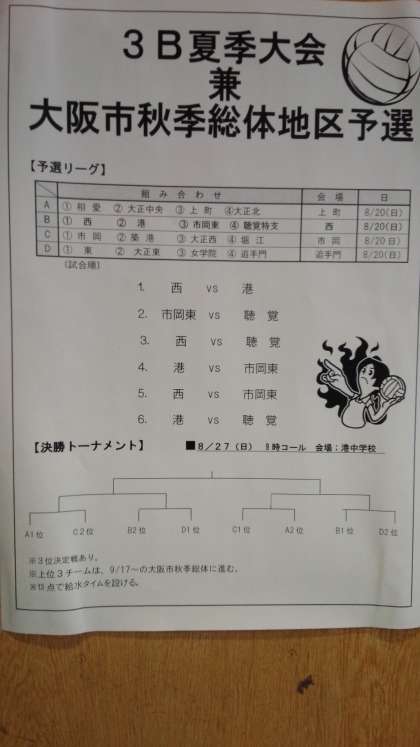 3B夏季大会
兼
大阪市秋季総体地区予選
【予選リーグ】
組み合わせ 会場 日
A ①相愛 ②大正中央 ③上町 ④大正北 上町 8/20(日)
B ①西 ②港 ③市岡東 ④聴覚特支 西 8/20(日)
C ①市岡 ②築港 ③大正西 ④堀江 市岡 8/20(日)
D ①東 ②大正東 ③女学院 ④追手門 追手門 8/20(日)
(試合順)
1. 西 vs 港
2. 市岡東 vs 聴覚
3. 西 vs 聴覚
4. 港 vs 市岡東
5. 西 vs 市岡東
6. 港 vs 聴覚
【決勝トーナメント】 ■8/27(日) 9時コール 会場:港中学校
A1位 C2位 B2位 D1位 C1位 A2位 B1位 D2位
※3位決定戦あり。
※上位3チームは、9/17~の大阪市秋季総体に進む。
※13点で給水タイムを設ける。